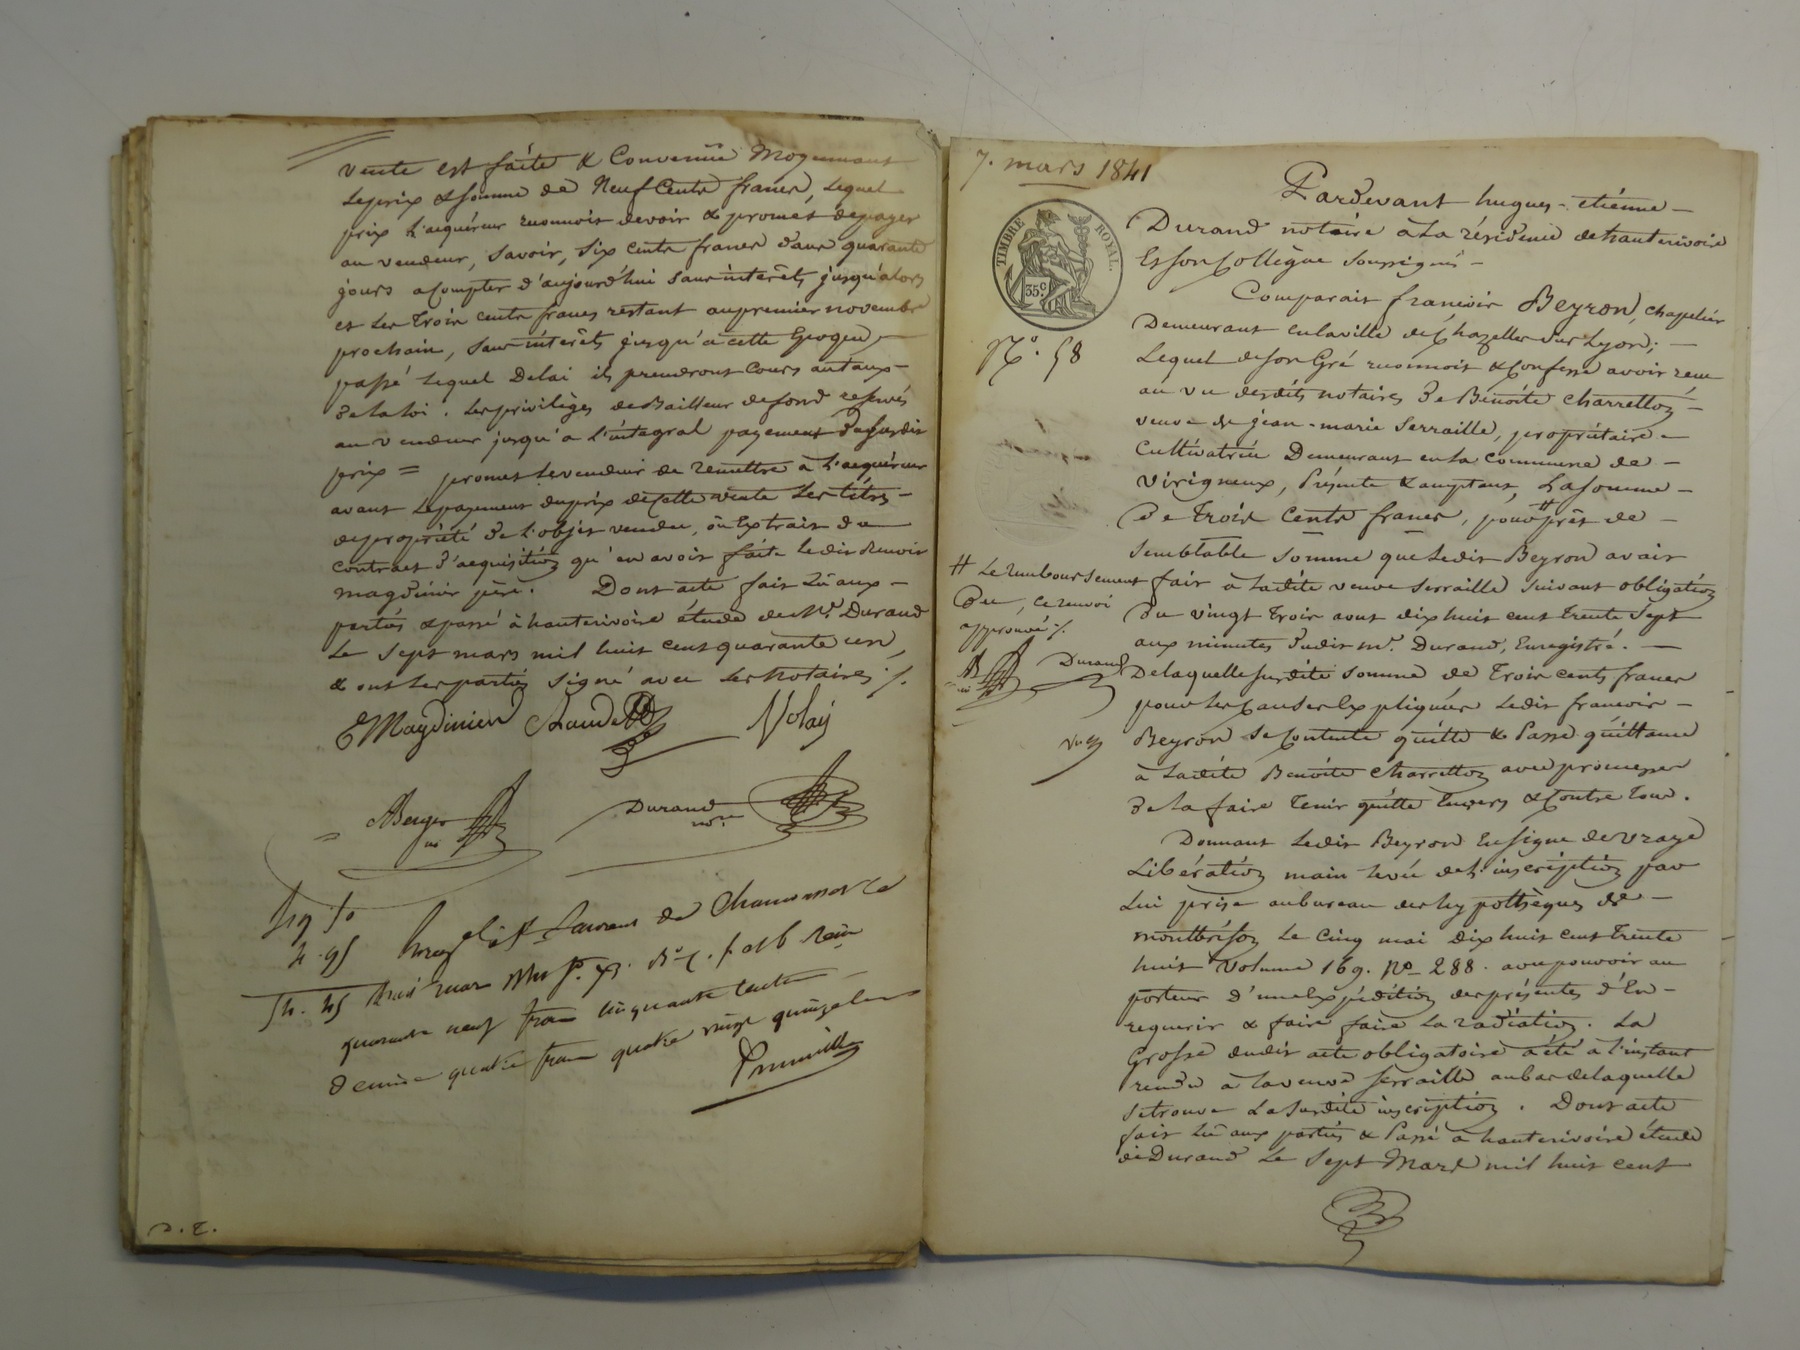 vente est faite & Convenüe Moyennant
Le prix & somme de Neuf Cents francs, Lequel
prix L'acquéreur reconnoit devoir & promet de payer
au vendeur, Savoir, Six cents francs dans quarante
jours a Compter d'aujourd'hui Sans intérêts jusqu'alors
et Les trois cents francs restant au premier novembre
prochain, Sans intérêts jusqu'à cette Epoque
passé Lequel Delai ils prendront Cours au taux
de la loi. Les privilèges de Bailleur de fond reservés
au vendeur jusqu'a L'intégral payement du susdit
prix = promet Le vendeur de remettre à L'acquéreur
avant Le payement du prix de Cette vente Les titres
de propriété de L'objet vendu, ou Extrait du
Contract d'acquisition qu'en avoit faite ledit Benoit
magdinier père. Dont acte fait Lu aux
parties & passé à hauterivoire étude de Mr. Durand
Le Sept mars mil huit cent quarante un,
& ont Les parties Signé avec Les Notaires ./.
Magdinier Volay
Berger
Durand
nore
4.95
54.45
quarante neuf francs cinquante centimes
decime quatre francs quatre vingt quinze
D. E.
7. mars 1841
TIMBRE ROYAL.
35c
No. 58
Pardevant hugues-etiénne
Durand notaire à La résidence de hauterivoire
Et Son Collègue Soussignés
Comparait francois Beyron, chapelier
Demeurant en la ville de Chazelles sur Lyon;
Lequel de son Gré reconnoit & Confesse avoir recu
au vu desdits notaires de Benoite Charretton
veuve de jean-marie Serraille, propriétaire
Cultivatrice Demeurant en la Commune de
Virigneux, Présente & acceptant, La Somme
De trois Cents francs, pour # prêt de
Semblable Somme que Ledit Beyron avait
# Le remboursement
Du, ce renvoi
approuvé ./.
Durand
fait à Ladite veuve Serraille Suivant obligation
Du vingt trois aout dix huit cent trente Sept
aux minutes dudit mr. Durand, Enregistré.
De laquelle susdite Somme de trois cents francs
pour Les Causes Expliquées Ledit francois
Beyron Se Contente quitte & Passe quittance
à Ladite Benoite Charretton avec promesse
de La faire tenir quitte Envers & Contre tous.
Donnant Ledit Beyron En Signe de vraye
Libération main levée de L'inscription par
Lui prise au bureau des hypothèques de
montbrison Le Cinq mai Dix huit Cent trente
huit Volume 169. No 288. avec pouvoir au
porteur d'une Expédition des présentes d'En
requerir & faire faire La radiation. La
Grosse dudit acte obligatoire a été à l'instant
rendu à La veuve Serraille au bas de laquelle
se trouve La Susdite inscription. Dont acte
fait Lu aux parties & Passé à hauterivoire étude
de Durand Le Sept Mars mil huit cent